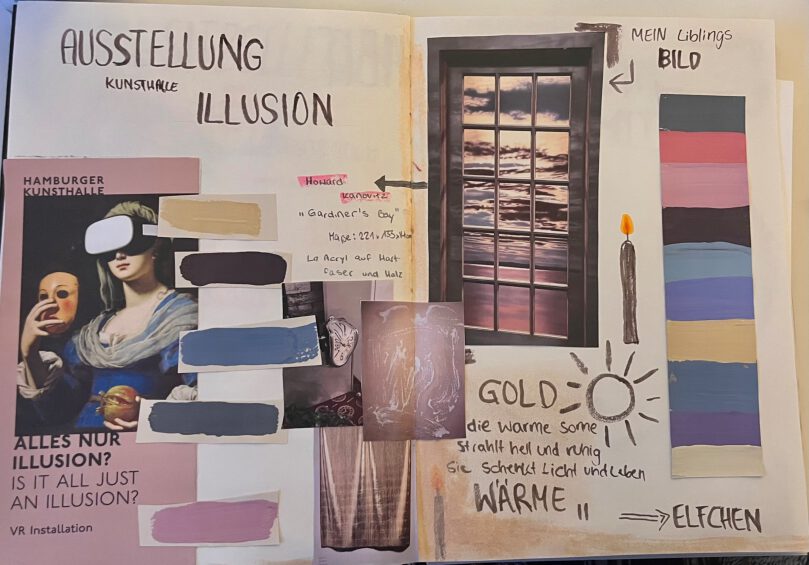 AUSSTELLUNG
KUNSTHALLE
ILLUSION
HAMBURGER
KUNSTHALLE
ALLES NUR
ILLUSION?
IS IT ALL JUST
AN ILLUSION?
VR Installation
Howard
Kanovitz
"Gardiner's Bay"
Maße: 221 x 155 x
Acryl auf Hart
faser und Holz
MEIN Liblings
BILD
GOLD
die warme Sonne
strahlt hell und ruhig
sie schenkt Licht und Leben
WÄRME
ELFCHEN